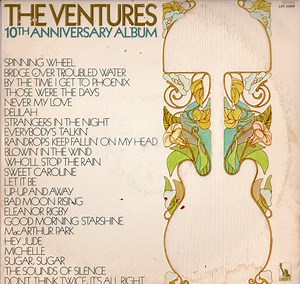 THE VENTURES
10TH ANNIVERSARY ALBUM
SPINNING WHEEL
BRIDGE OVER TROUBLED WATER
BY THE TIME I GET TO PHOENIX
THOSE WERE THE DAYS
NEVER MY LOVE
DELILAH
STRANGERS IN THE NIGHT
EVERYBODY'S TALKIN'
RAINDROPS KEEP FALLIN ON MY HEAD
BLOWIN' IN THE WIND
WHO'LL STOP THE RAIN
SWEET CAROLINE
LET IT BE
UP-UP AND AWAY
BAD MOON RISING
ELEANOR RIGBY
GOOD MORNING STARSHINE
MacARTHUR PARK
HEY JUDE
MICHELLE
SUGAR, SUGAR
THE SOUNDS OF SILENCE
DON'T THINK TWICE, IT'S ALL RIGHT